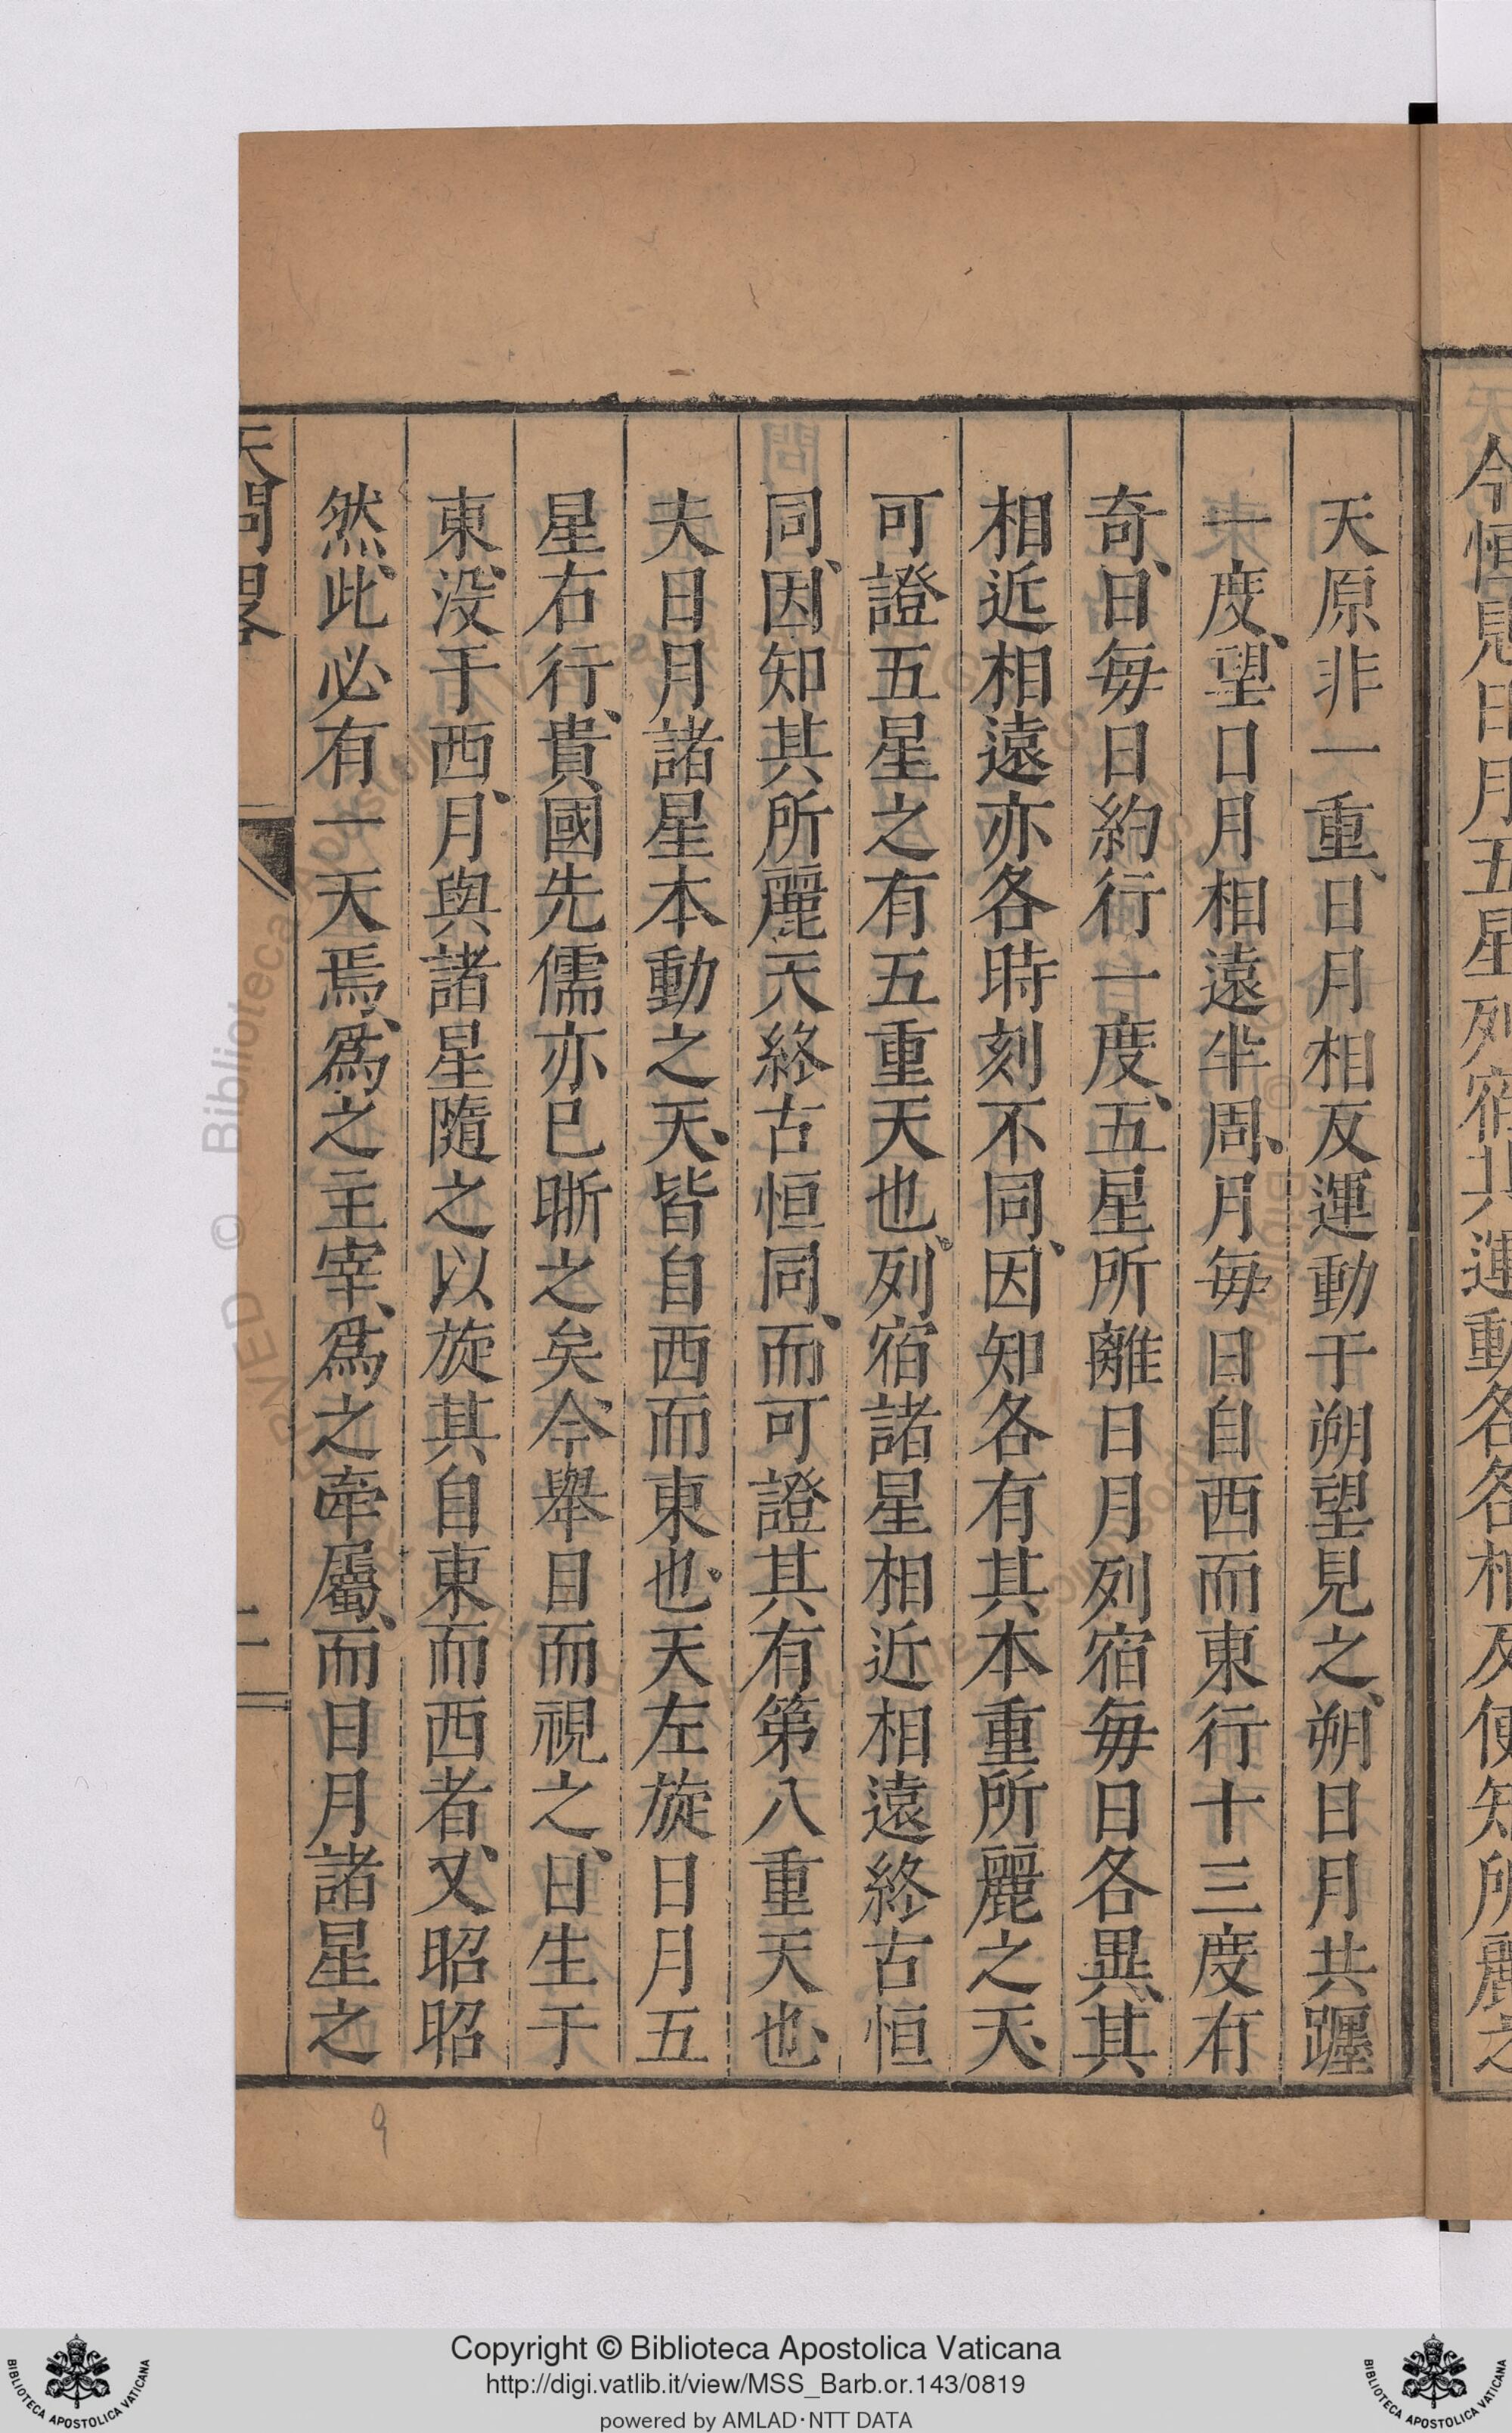 今恒見日月五星列宿共運動各各相反便知所麗之
天原非一重、日月相反運動于朔望見之、朔日月共躔
一度、望日月相遠半周、月每日自西而東行十三度有
奇、日每日約行一度、五星所離日月列宿每日各異、其
相近相遠亦各時刻不同、因知各有其本重所麗之天、
可證五星之有五重天也。列宿諸星相近相遠終古恒
同、因知其所麗天終古恒同、而可證其有第八重天也、
夫日月諸星本動之天、皆自西而東也。天左旋日月五
星右行、貴國先儒亦已晣之矣、今舉目而視之、日生于
東、没于西、月與諸星隨之以旋其自東而西者、又昭昭
然、此必有一天焉、為之主宰、為之牽屬、而日月諸星之
天問畧
二
9
© Biblioteca Apostolica
Copyright © Biblioteca Apostolica Vaticana
http://digi.vatlib.it/view/MSS_Barb.or.143/0819
powered by AMLAD·NTT DATA
BIBLIOTECA APOSTOLICA VATICANA
BIBLIOTECA APOSTOLICA VATICANA